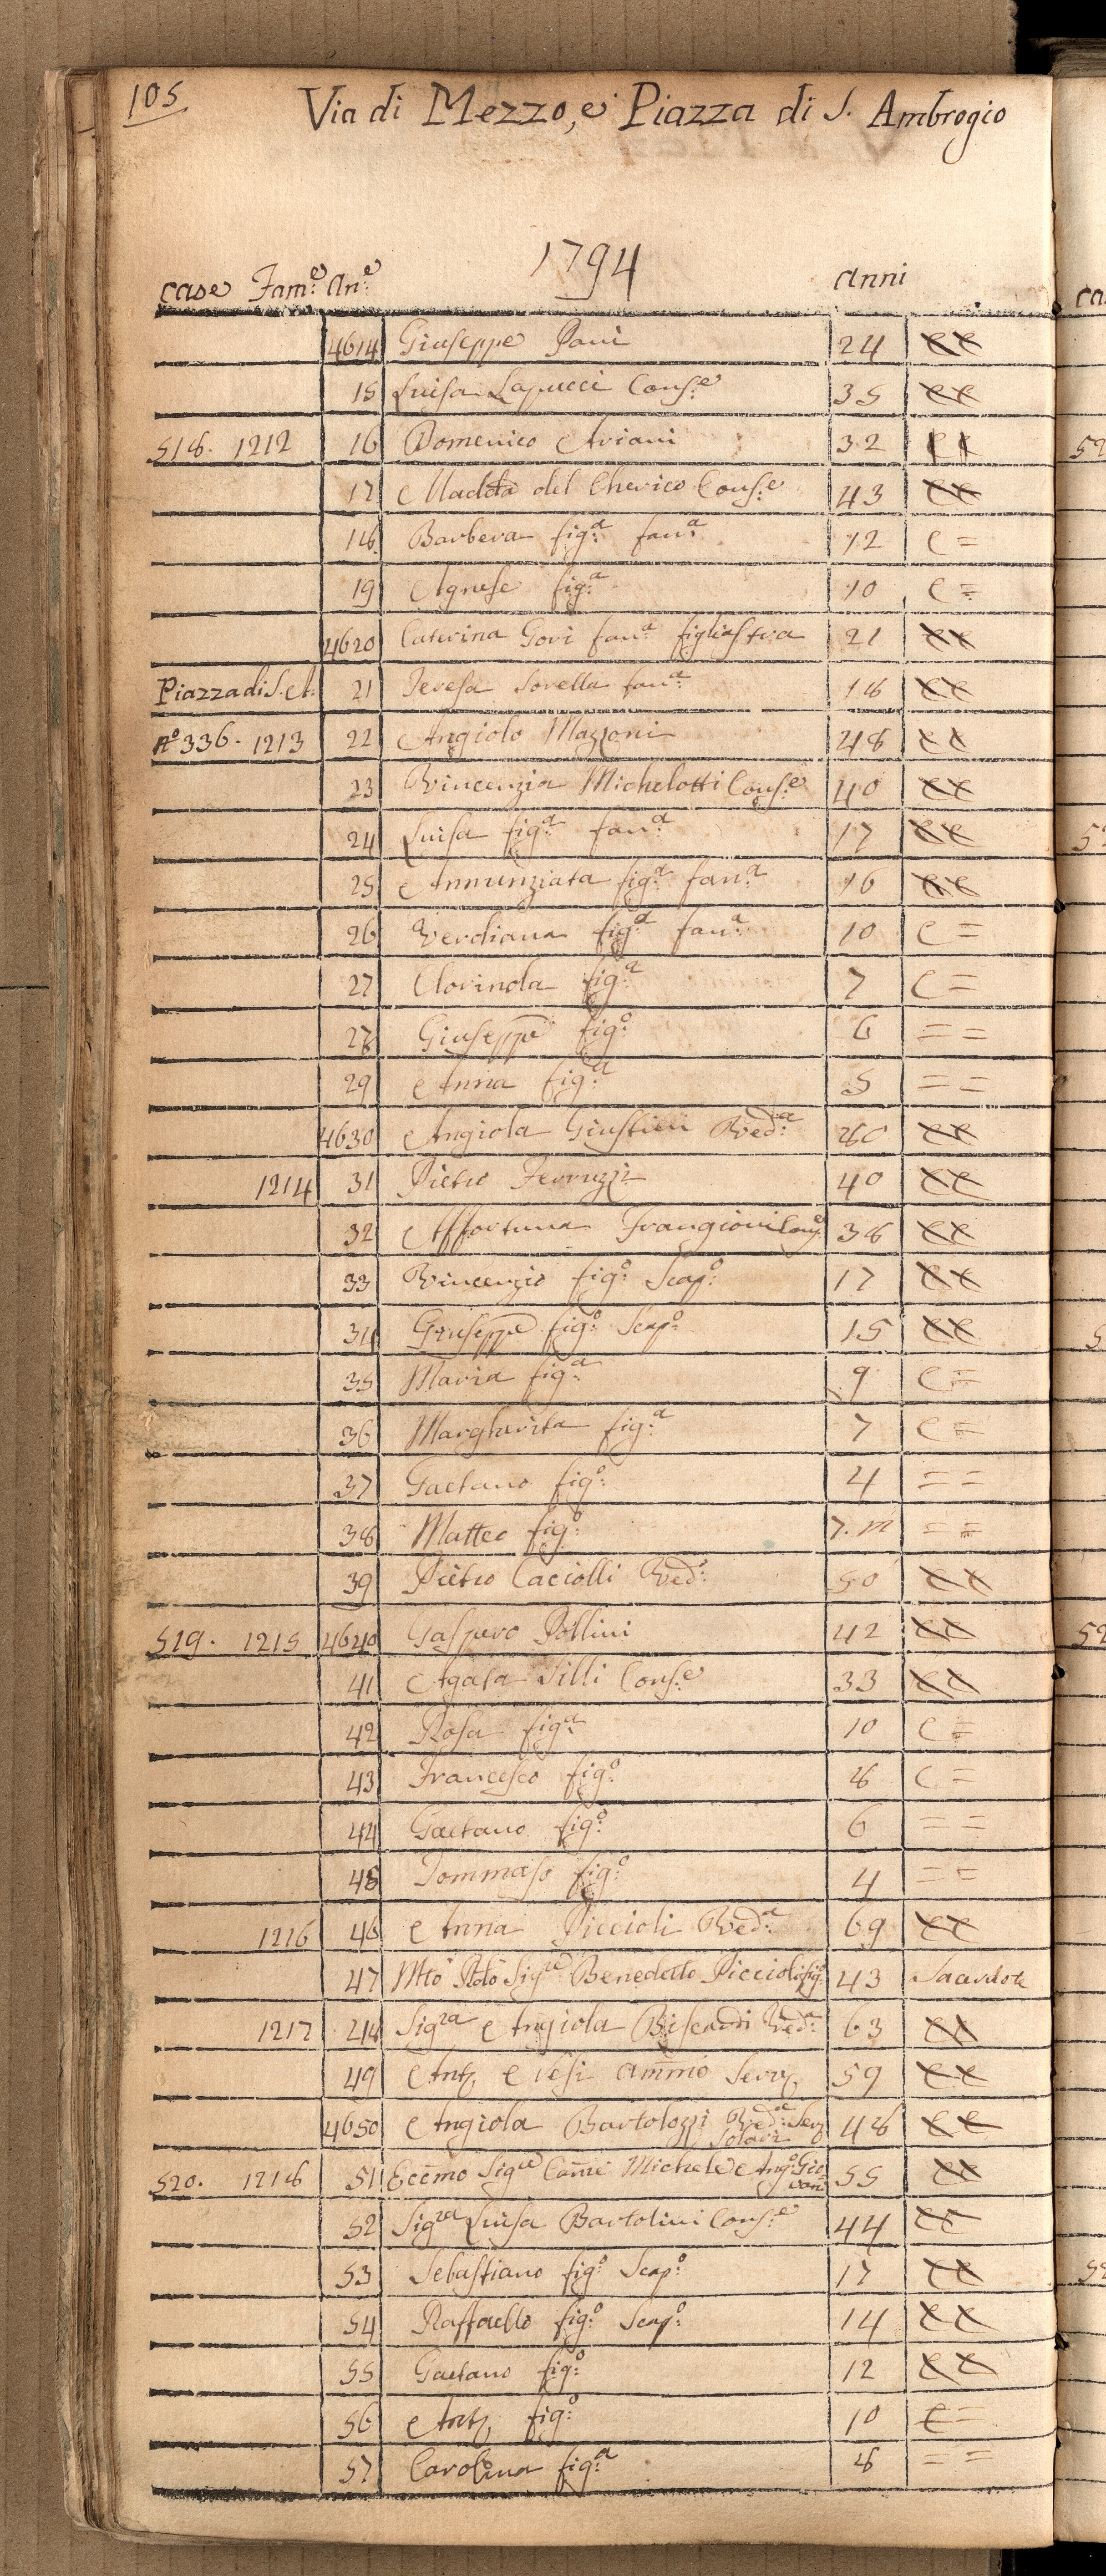 105
Via di Mezzo, e Piazza di S. Ambrogio
1794
case Fam:e An:e anni
4614 Giuseppe Pani 24 CC
15 Luisa Lapucci Cons:e 35 CC
518. 1212 16 Domenico Aviani 32 CC
17 Madda del Cherico Cons:e 43 CC
18 Barbera fig:a fan:a 12 C =
19 Agnese fig:a 10 C =
4620 Caterina Gori fan:a figliastra 21 CC
Piazza di S. A. 21 Teresa Sorella fan:a 18 CC
No 336. 1213 22 Angiolo Mazzoni 48 CC
23 Vincenzia Michelotti Cons:e 40 CC
24 Luisa fig:a fan:a 17 CC
25 Annunziata fig:a fan:a 16 CC
26 Verdiana fig:a fan:a 10 C =
27 Clorinda fig:a 7 C =
28 Giuseppe fig:o 6 = =
29 Anna fig:a 5 = =
4630 Angiola Giustini Ved:a 80 CC
1214 31 Pietro Ferruzzi 40 CC
32 Affortuna Frangioni Cons 38 CC
33 Vincenzio fig:o Scap:o 17 CC
34 Giuseppe fig:o Scap:o 15 CC
35 Maria fig:a 9 C =
36 Margherita fig:a 7 C =
37 Gaetano fig:o 4 = =
38 Matteo fig:o 7. m = =
39 Pietro Caciolli Ved:o 50 CC
519. 1215 4640 Gaspero Pollini 42 CC
41 Agata Silli Cons:e 33 CC
42 Rosa fig:a 10 C =
43 Francesco fig:o 8 C =
44 Gaetano fig:o 6 = =
45 Tommaso fig:o 4 = =
1216 46 Anna Piccioli Ved:a 69 CC
47 Mto Rdo Sigre Benedetto Piccioli fig:o 43 Sacerdote
1217 48 Sigra Angiola Ved:a 63 CC
49 Anto Vesi Ammo Serve 59 CC
4650 Angiola Bartolozzi Ved:a Serv 48 CC
520. 1218 51 Eccmo Sigre Michele Ang:o Gio 55 CC
52 Sigra Luisa Bartolini Cons:e 44 CC
53 Sebastiano fig:o Scap:o 17 CC
54 Raffaello fig:o Scap:o 14 CC
55 Gaetano fig:o 12 CC
56 Anto fig:o 10 C =
57 Carolina fig:a 8 = =